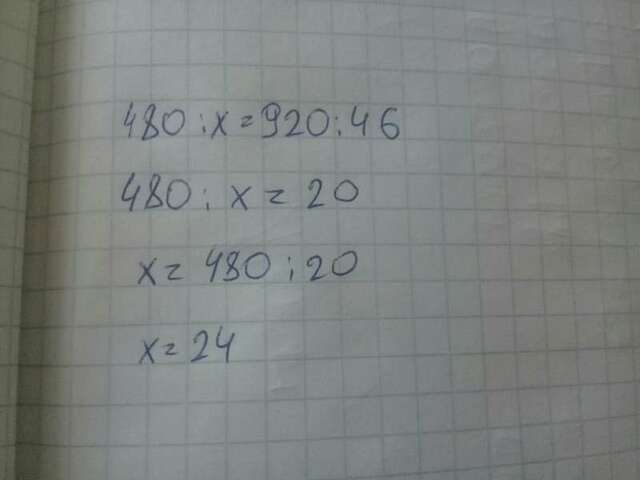 480:x=920:46
480:x=20
x=480:20
x=24